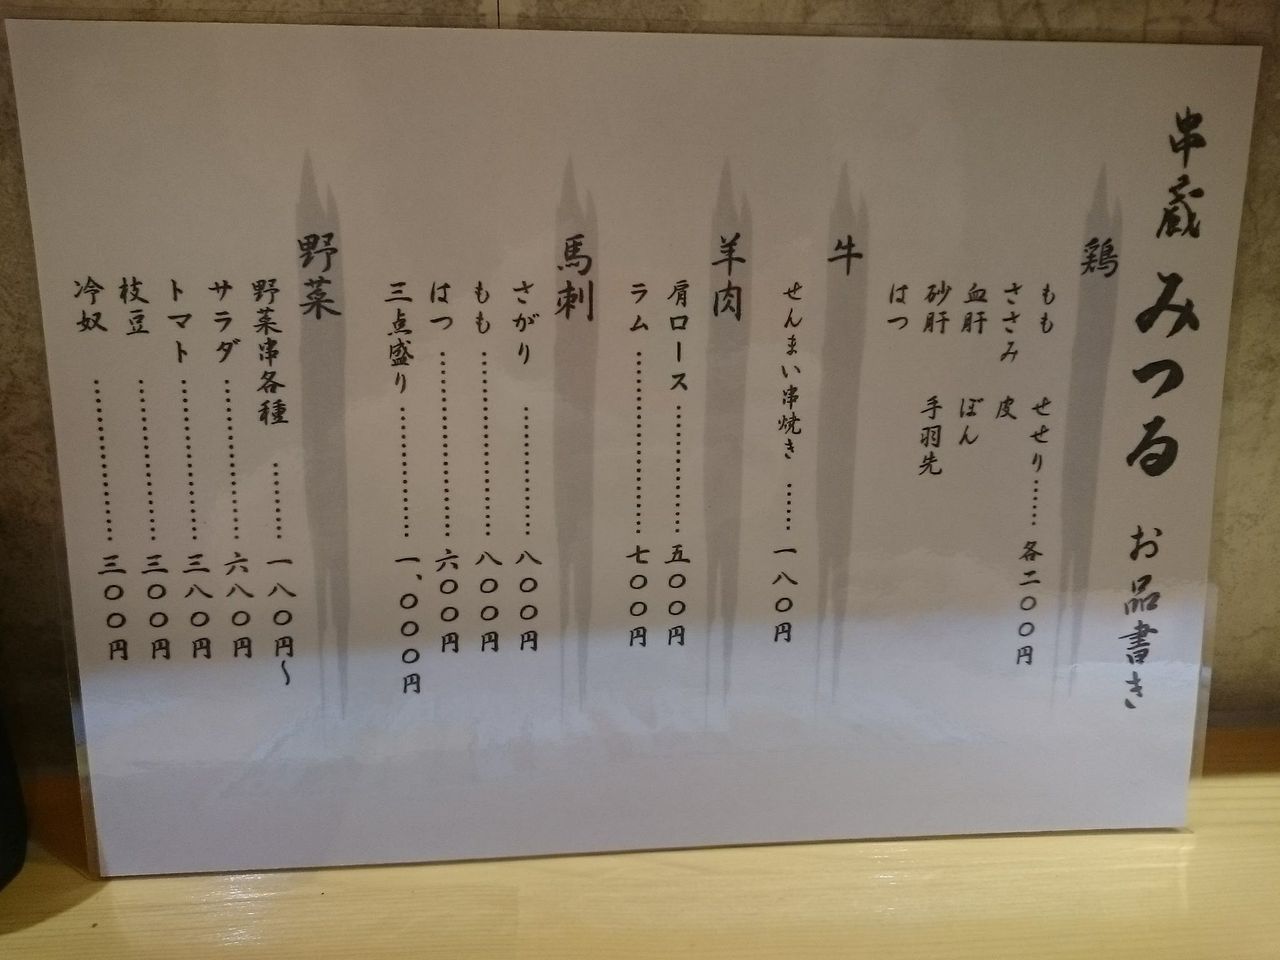 串蔵 みつる お品書き
鶏
もも せせり……各二〇〇円
ささみ 皮
血肝 ぼん
砂肝 手羽先
はつ
牛
せんまい串焼き……一八〇円
羊肉
肩ロース……………五〇〇円
ラム…………………七〇〇円
馬刺
さがり……………八〇〇円
もも…………………八〇〇円
はつ…………………六〇〇円
三点盛り……………一、〇〇〇円
野菜
野菜串各種………一八〇円〜
サラダ………………六八〇円
トマト………………三八〇円
枝豆…………………三〇〇円
冷奴…………………三〇〇円